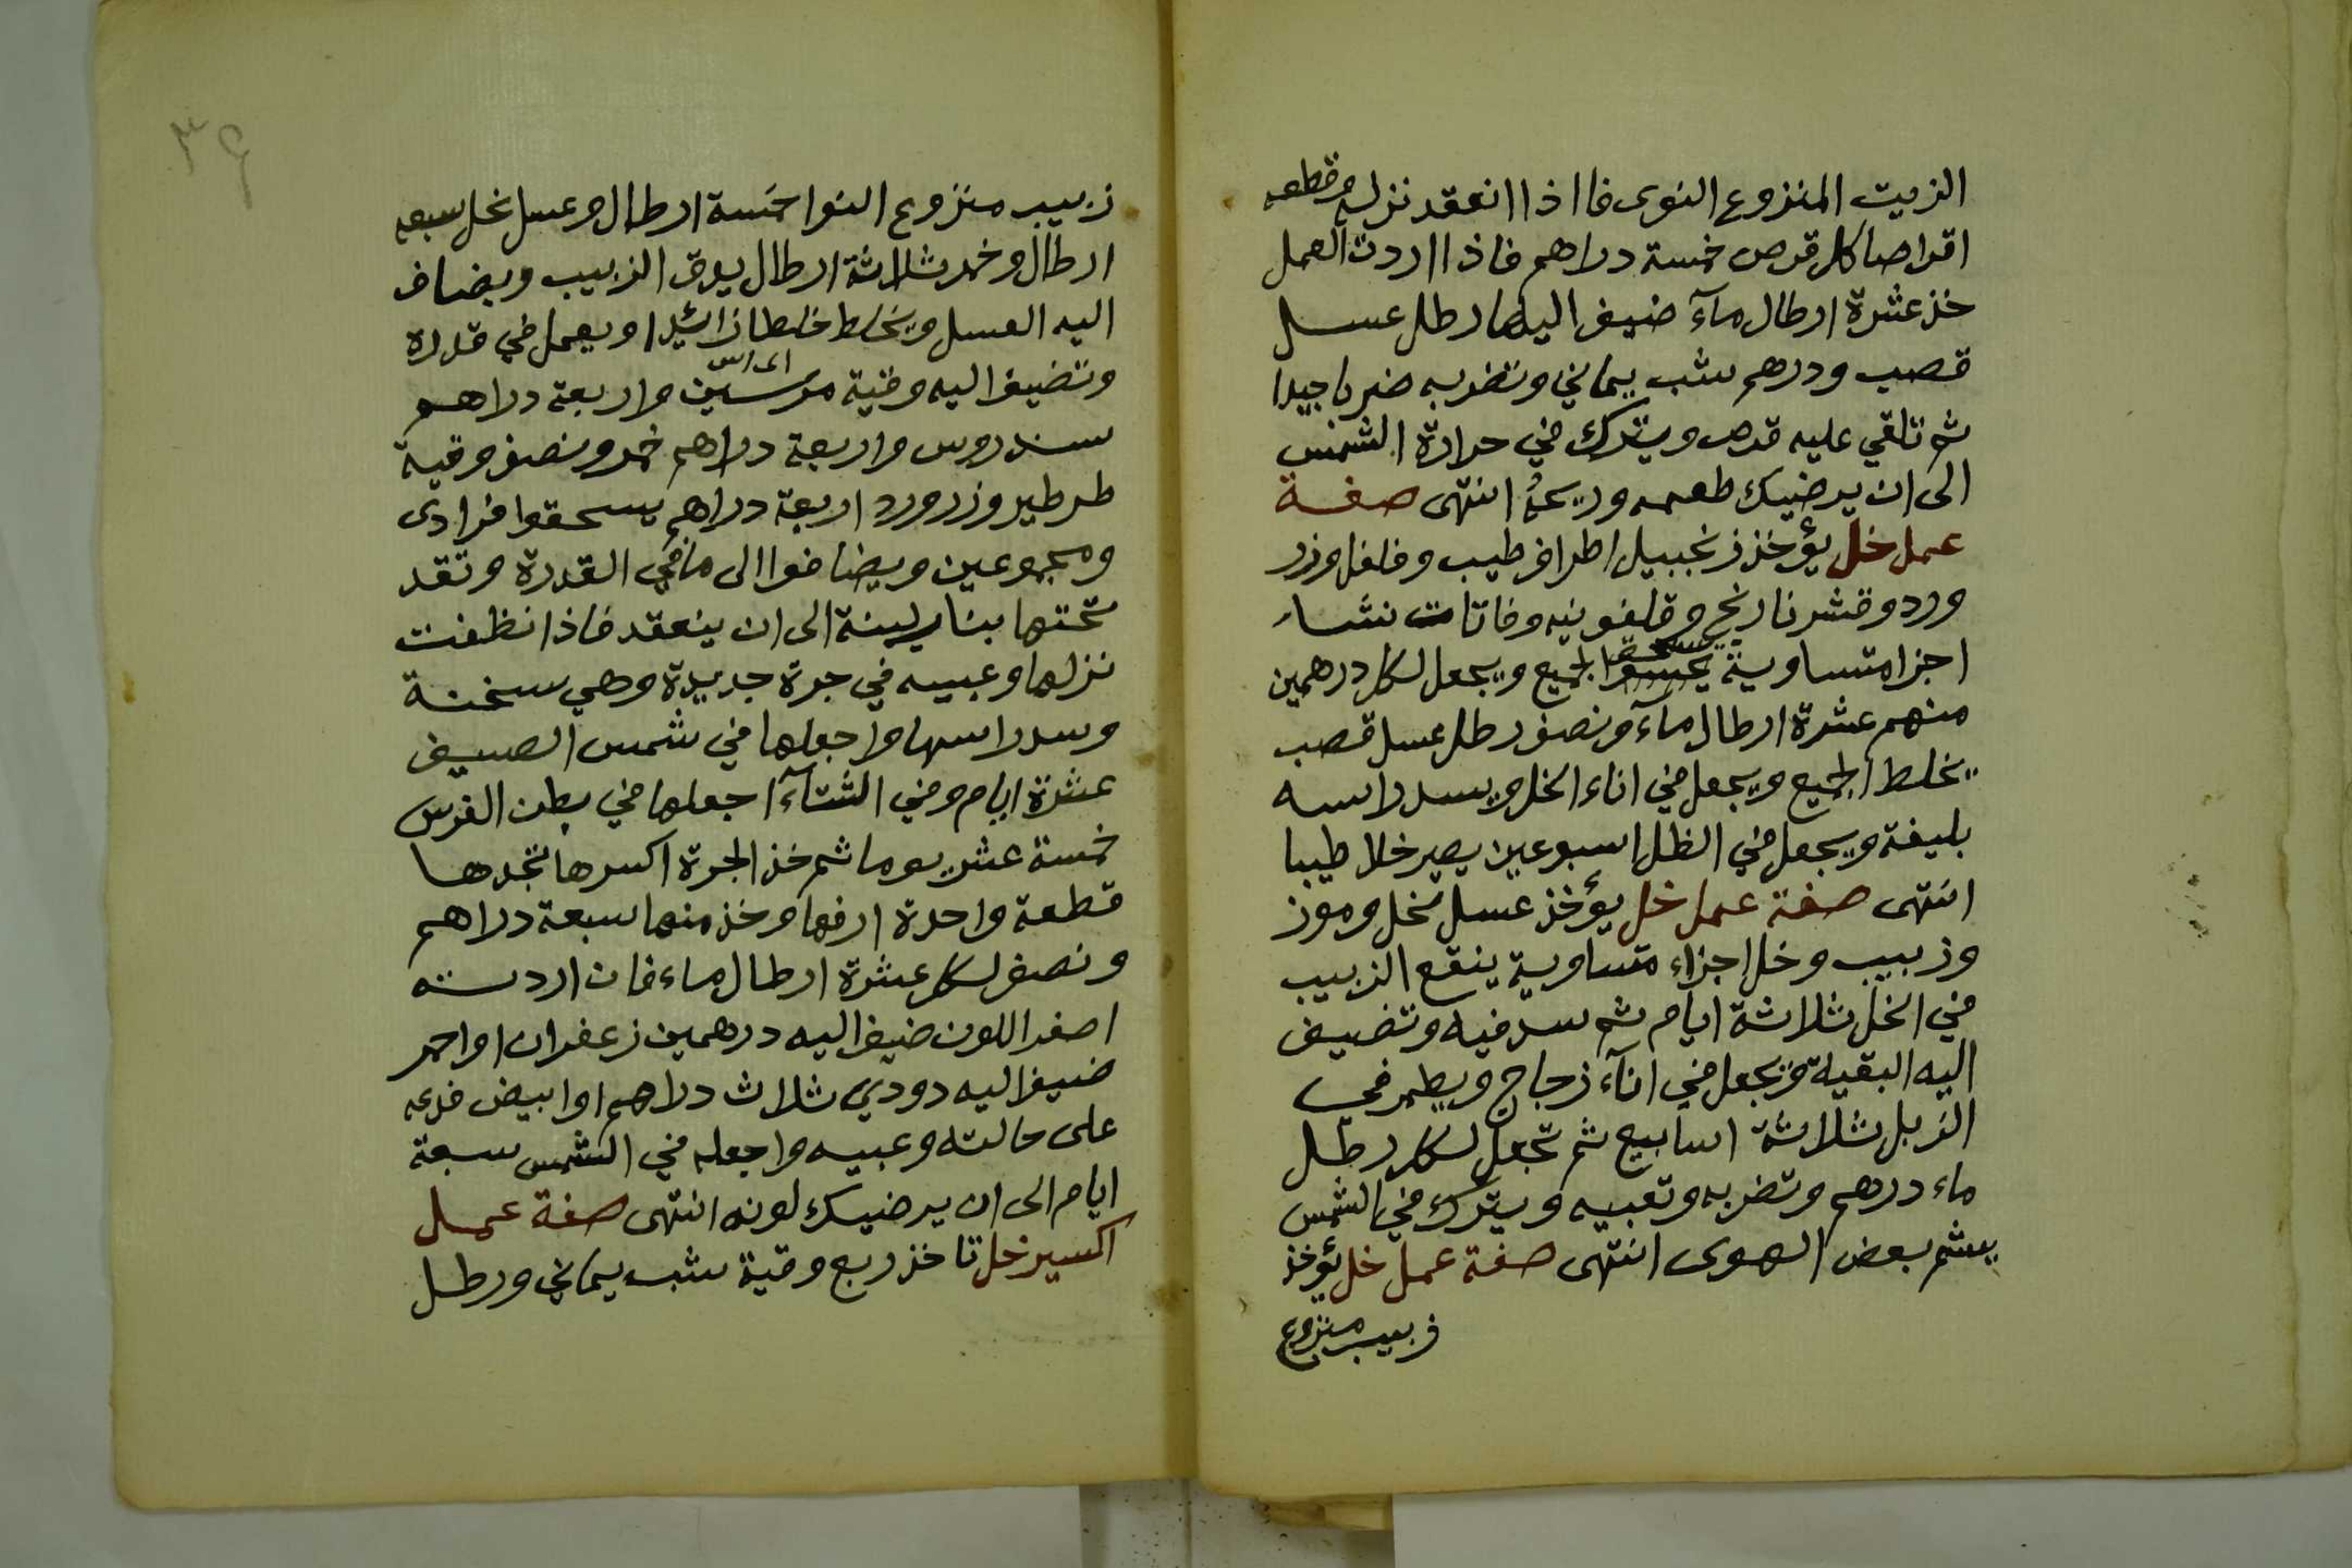 الزيت المنزوع النوى فا اذا انعقد نزله وقطعه
اقراصا كل قرص خمسة دراهم فاذا اردت العمل
خذ عشرة ارطال مآء ضيف اليها رطل عسل
قصب ودرهم شب يماني وتضربه ضربا جيدا
ثم تلقي عليه قرص ويترك في حرارة الشمس
الى ان يرضيك طعمه وريحه انتهى صفة
عمل خل يؤخذ زنجبيل اطراف طيب وفلفل وزر
ورد وقشر نارنج وقلفونيه وفاتات نشاء
اجزا متساوية يسحقوا الجميع ويجعل لكل درهمين
منهم عشرة ارطال مآء ونصف رطل عسل قصب
يخلط الجميع ويجعل في اناء الخل ويسد راسه
بليفة ويجعل في الظل اسبوعين يصير خلا طيبا
انتهى صفة عمل خل يؤخذ عسل نحل وموز
وزبيب وخل اجزاء متساوية ينقع الزبيب
في الخل ثلاثة ايام ثم سد فيه وتضيف
اليه البقية ويجعل في انآء زجاج ويطمر في
الزبل ثلاثة اسابيع ثم تجعل لكل رطل
ماء درهم وتضربه وتعبيه ويترك في الشمس
يعشم بعض الهوى انتهى صفة عمل خل يؤخذ
زبيب منزوع
٣٤
زبيب منزوع النوا خمسة ارطال وعسل نحل سبعه
ارطال وخمر ثلاثة ارطال يدق الزبيب ويضاف
اليه العسل ويخلط خلطا زائيدا ويعمل في قدرة
وتضيف اليه وقية مرسين واربعة دراهم
اى اس
سندروس واربعة دراهم خمر ونصف وقية
طرطير وزر ورد اربعة دراهم يسحقوا فرادى
ومجموعين ويضافوا الى ما في القدرة وتقد
تحتها بنار لينة الى ان ينعقد فاذا نظفت
نزلها وعبيه في جرة جديدة وهي سخنة
وسد راسها واجعلها في شمس الصيف
عشرة ايام وفي الشتآء اجعلها في بطن الفرس
خمسة عشر يوما ثم خذ الجرة اكسرها تجدها
قطعة واحدة ارفعها وخذ منها سبعة دراهم
ونصف لكل عشرة ارطال ماء فان اردته
اصفر اللون ضيف اليه درهمين زعفران او احمر
ضيف اليه دودي ثلاث دراهم او ابيض فدعه
على حالته وعبيه واجعله في الشمس سبعة
ايام الى ان يرضيك لونه انتهى صفة عمل
اكسير خل تاخذ ربع وقية شب يماني ورطل